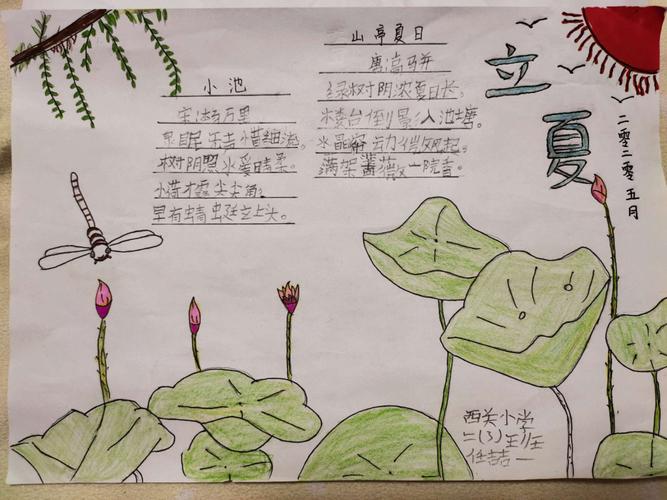 立夏
二零二零五月
山亭夏日
唐高骈
绿树阴浓夏日长。
楼台倒影入池塘。
水晶帘动微风起。
满架蔷薇一院香。
小池
宋杨万里
泉眼无声惜细流。
树阴照水爱晴柔。
小荷才露尖尖角，
早有蜻蜓立上头。
西关小学
二(3)班
任喆一